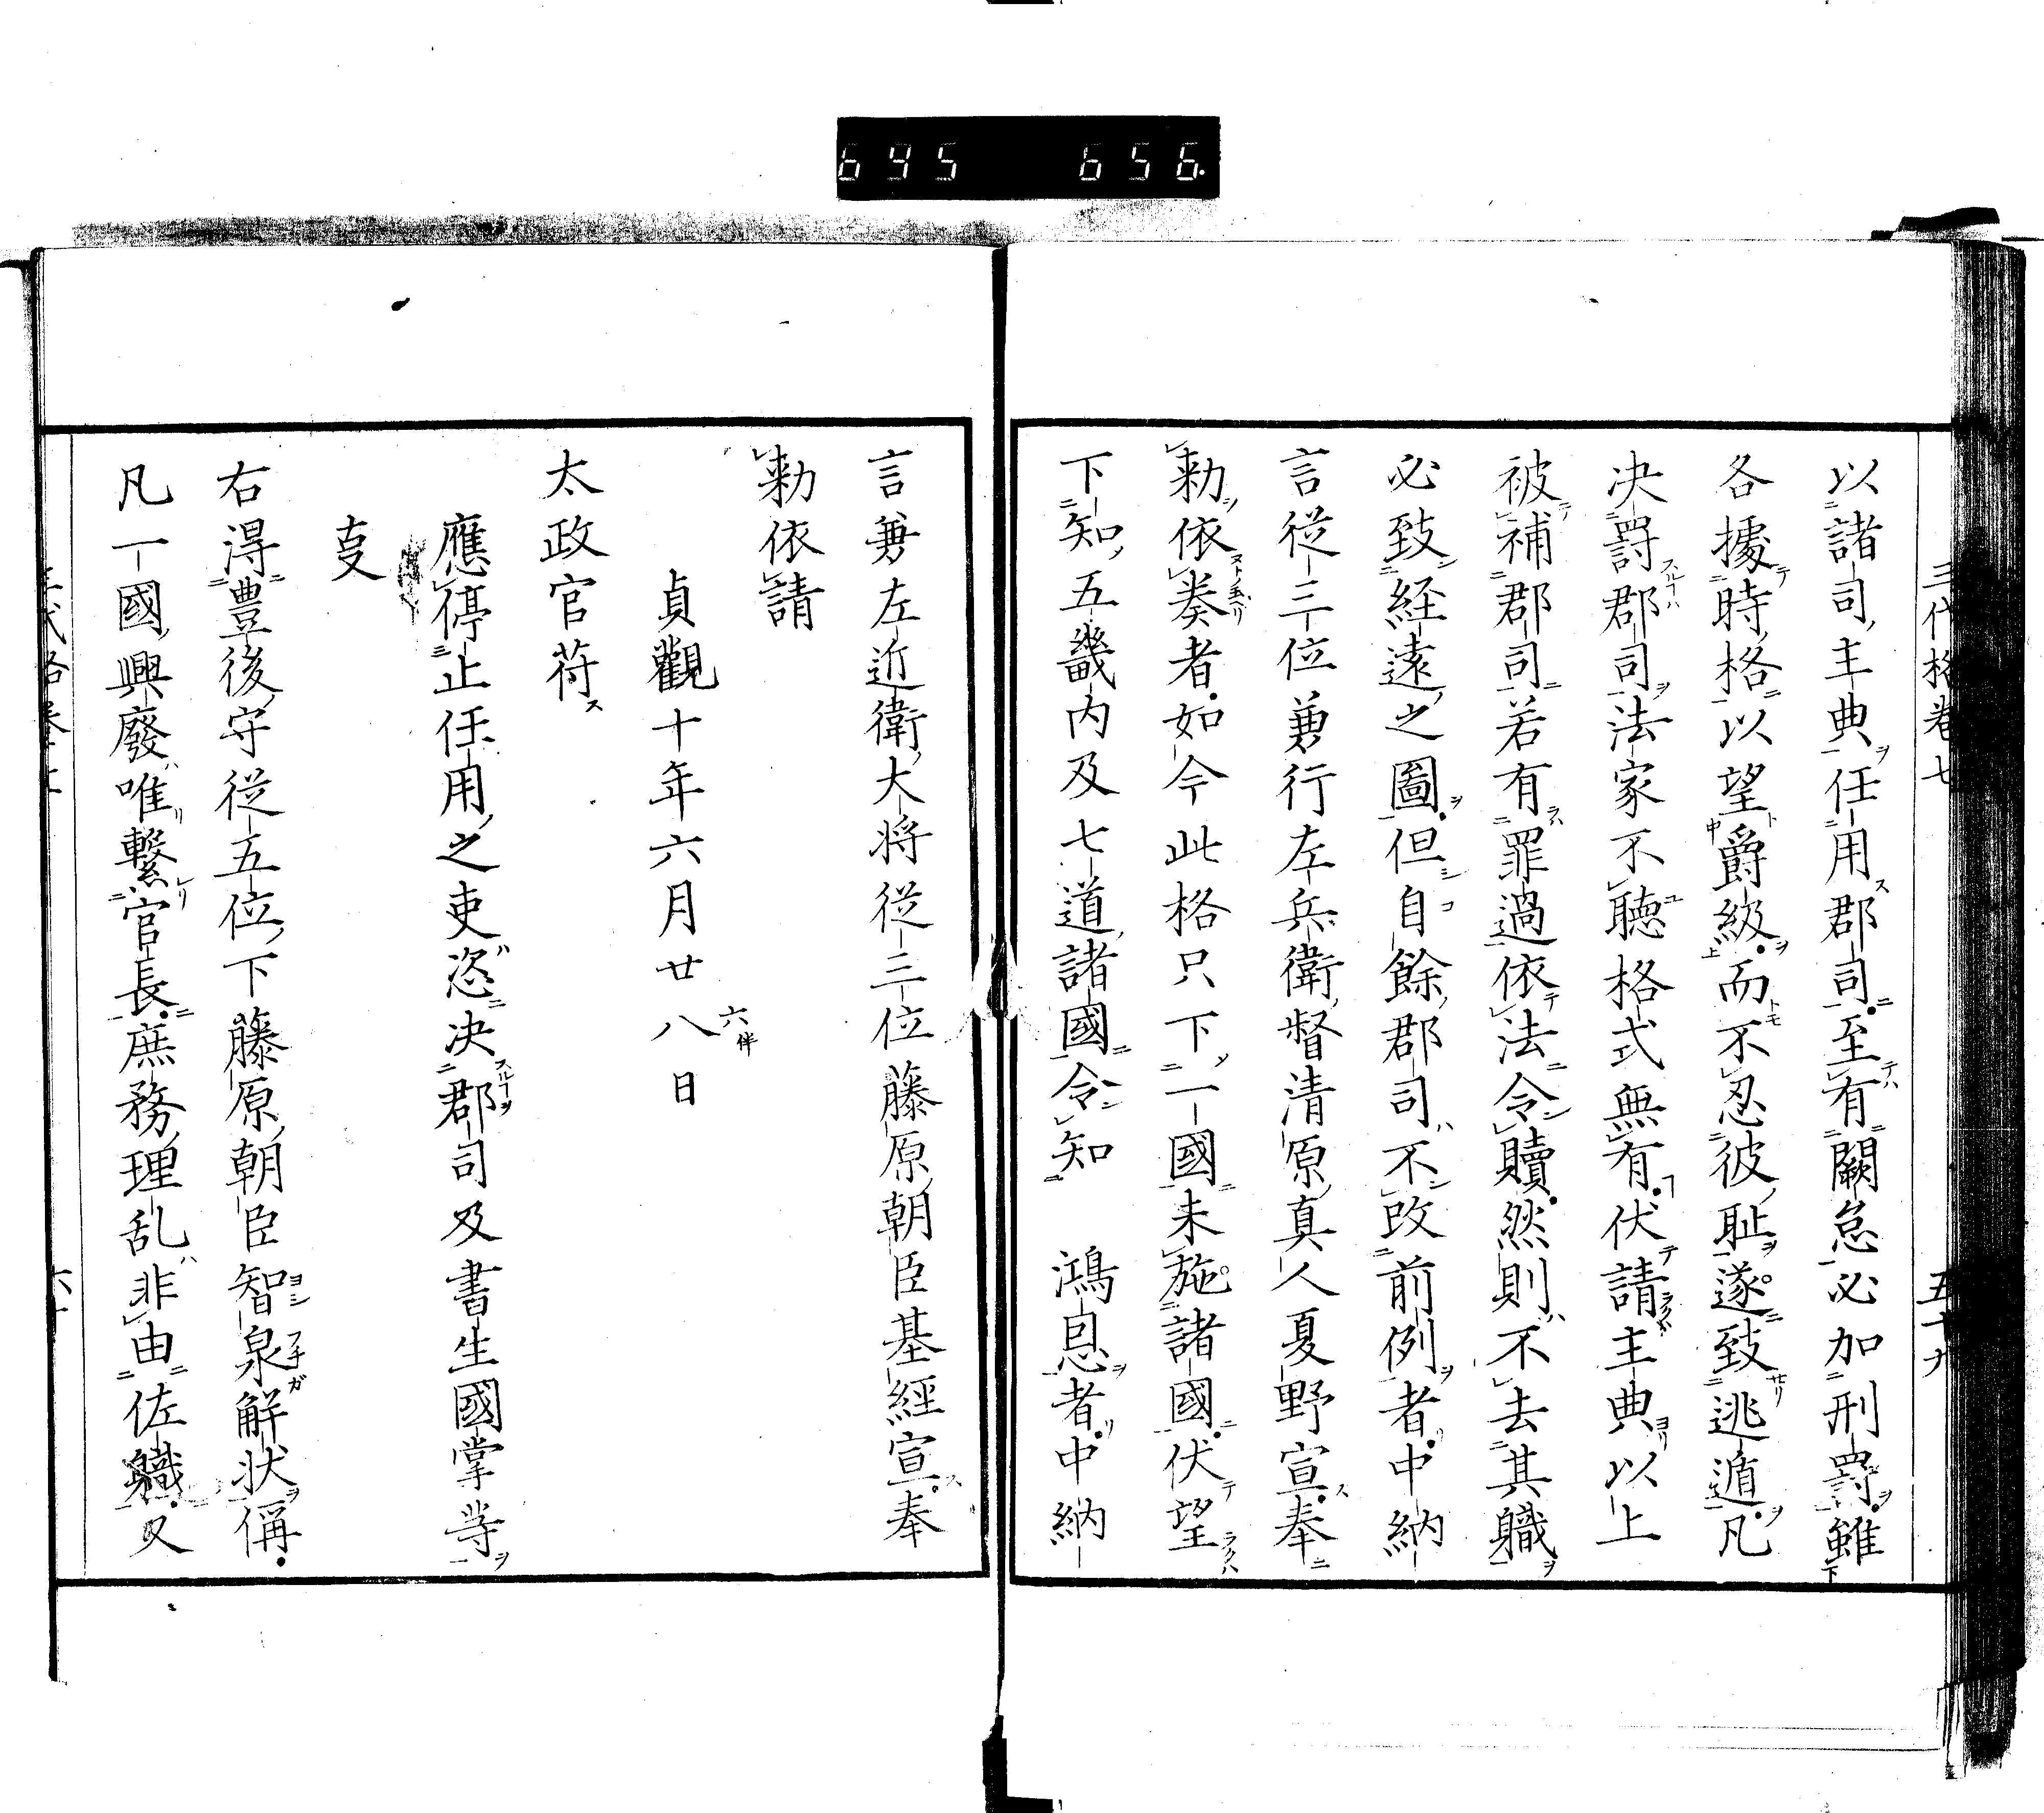 645 656.
三代格卷七 五十九
以諸司主典任用郡司至有闕怠必加刑罸雖
各據時格以望爵級而不忍彼耻遂致逃遁凡
決罸郡司法家不聴格式無有伏請主典以上
被補郡司若有罪過依法令贖然則不去其職
必致経遠之圖但自餘郡司不改前例者中納
言從三位兼行左兵衛督清原真人夏野宣奉
勅依奏者如今此格只下一國未施諸國伏望
下知五畿内及七道諸國令知 鴻恩者中納
言兼左近衛大将從三位藤原朝臣基經宣奉
勅依請
貞觀十年六月廿八日
六伴
太政官苻
應停止任用之吏恣决郡司及書生國掌等
事
右得豊後守從五位下藤原朝臣智泉解状偁
凡一國興廢唯繫官長庶務理乱非由佐職又